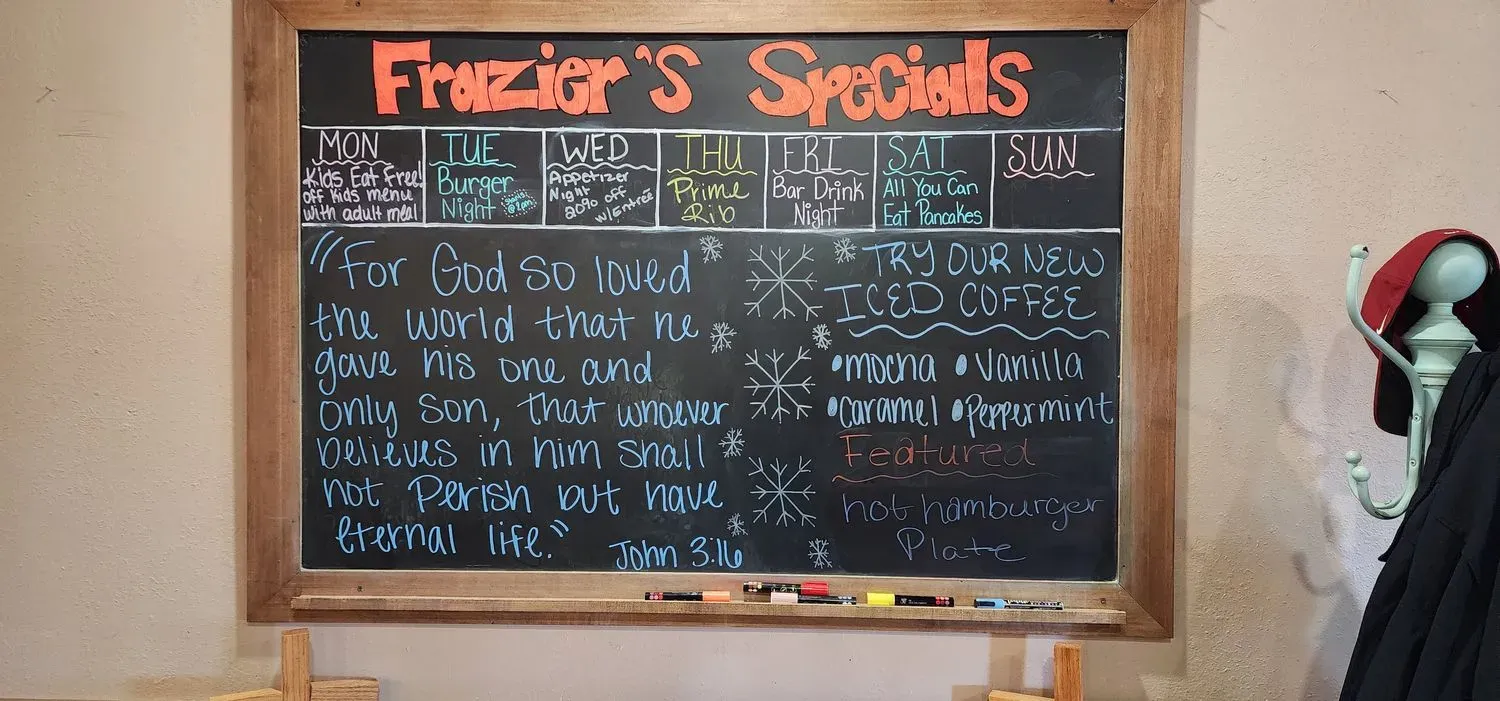 Frazier's Specials
MON
Kids Eat Free!
off kids menu
with adult meal
TUE
Burger
Night
@2pm
WED
Appetizer
Night
20% off
w/Entrée
THU
Prime
Rib
FRI
Bar Drink
Night
SAT
All You Can
Eat Pancakes
SUN
"For God so loved
the world that he
gave his one and
only son, that whoever
believes in him shall
not perish but have
eternal life."
John 3:16
TRY OUR NEW
ICED COFFEE
•mocha •Vanilla
•caramel •Peppermint
Featured
hot hamburger
Plate